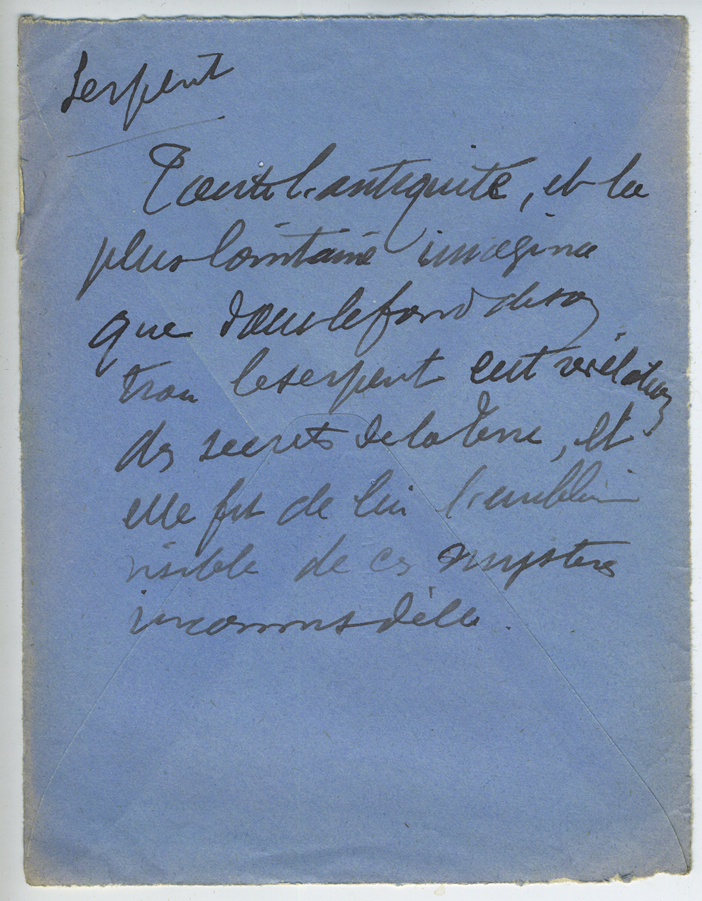 Serpent
Toute l'antiquité, et la
plus lointaine imagina
que dans le fond de son
trou le serpent eut révélation
des secrets de la terre, et
elle fit de lui l'emblème
visible de ces mystères
inconnus d'elle.